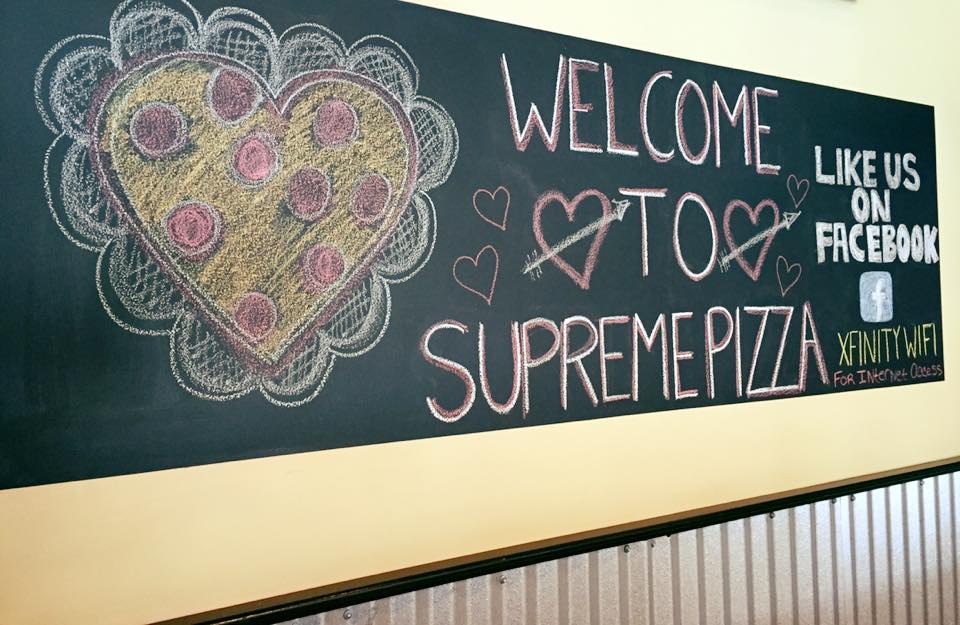 WELCOME
TO
SUPREME PIZZA
LIKE US
ON
FACEBOOK
f
XFINITY WIFI
FOR INterNet Access